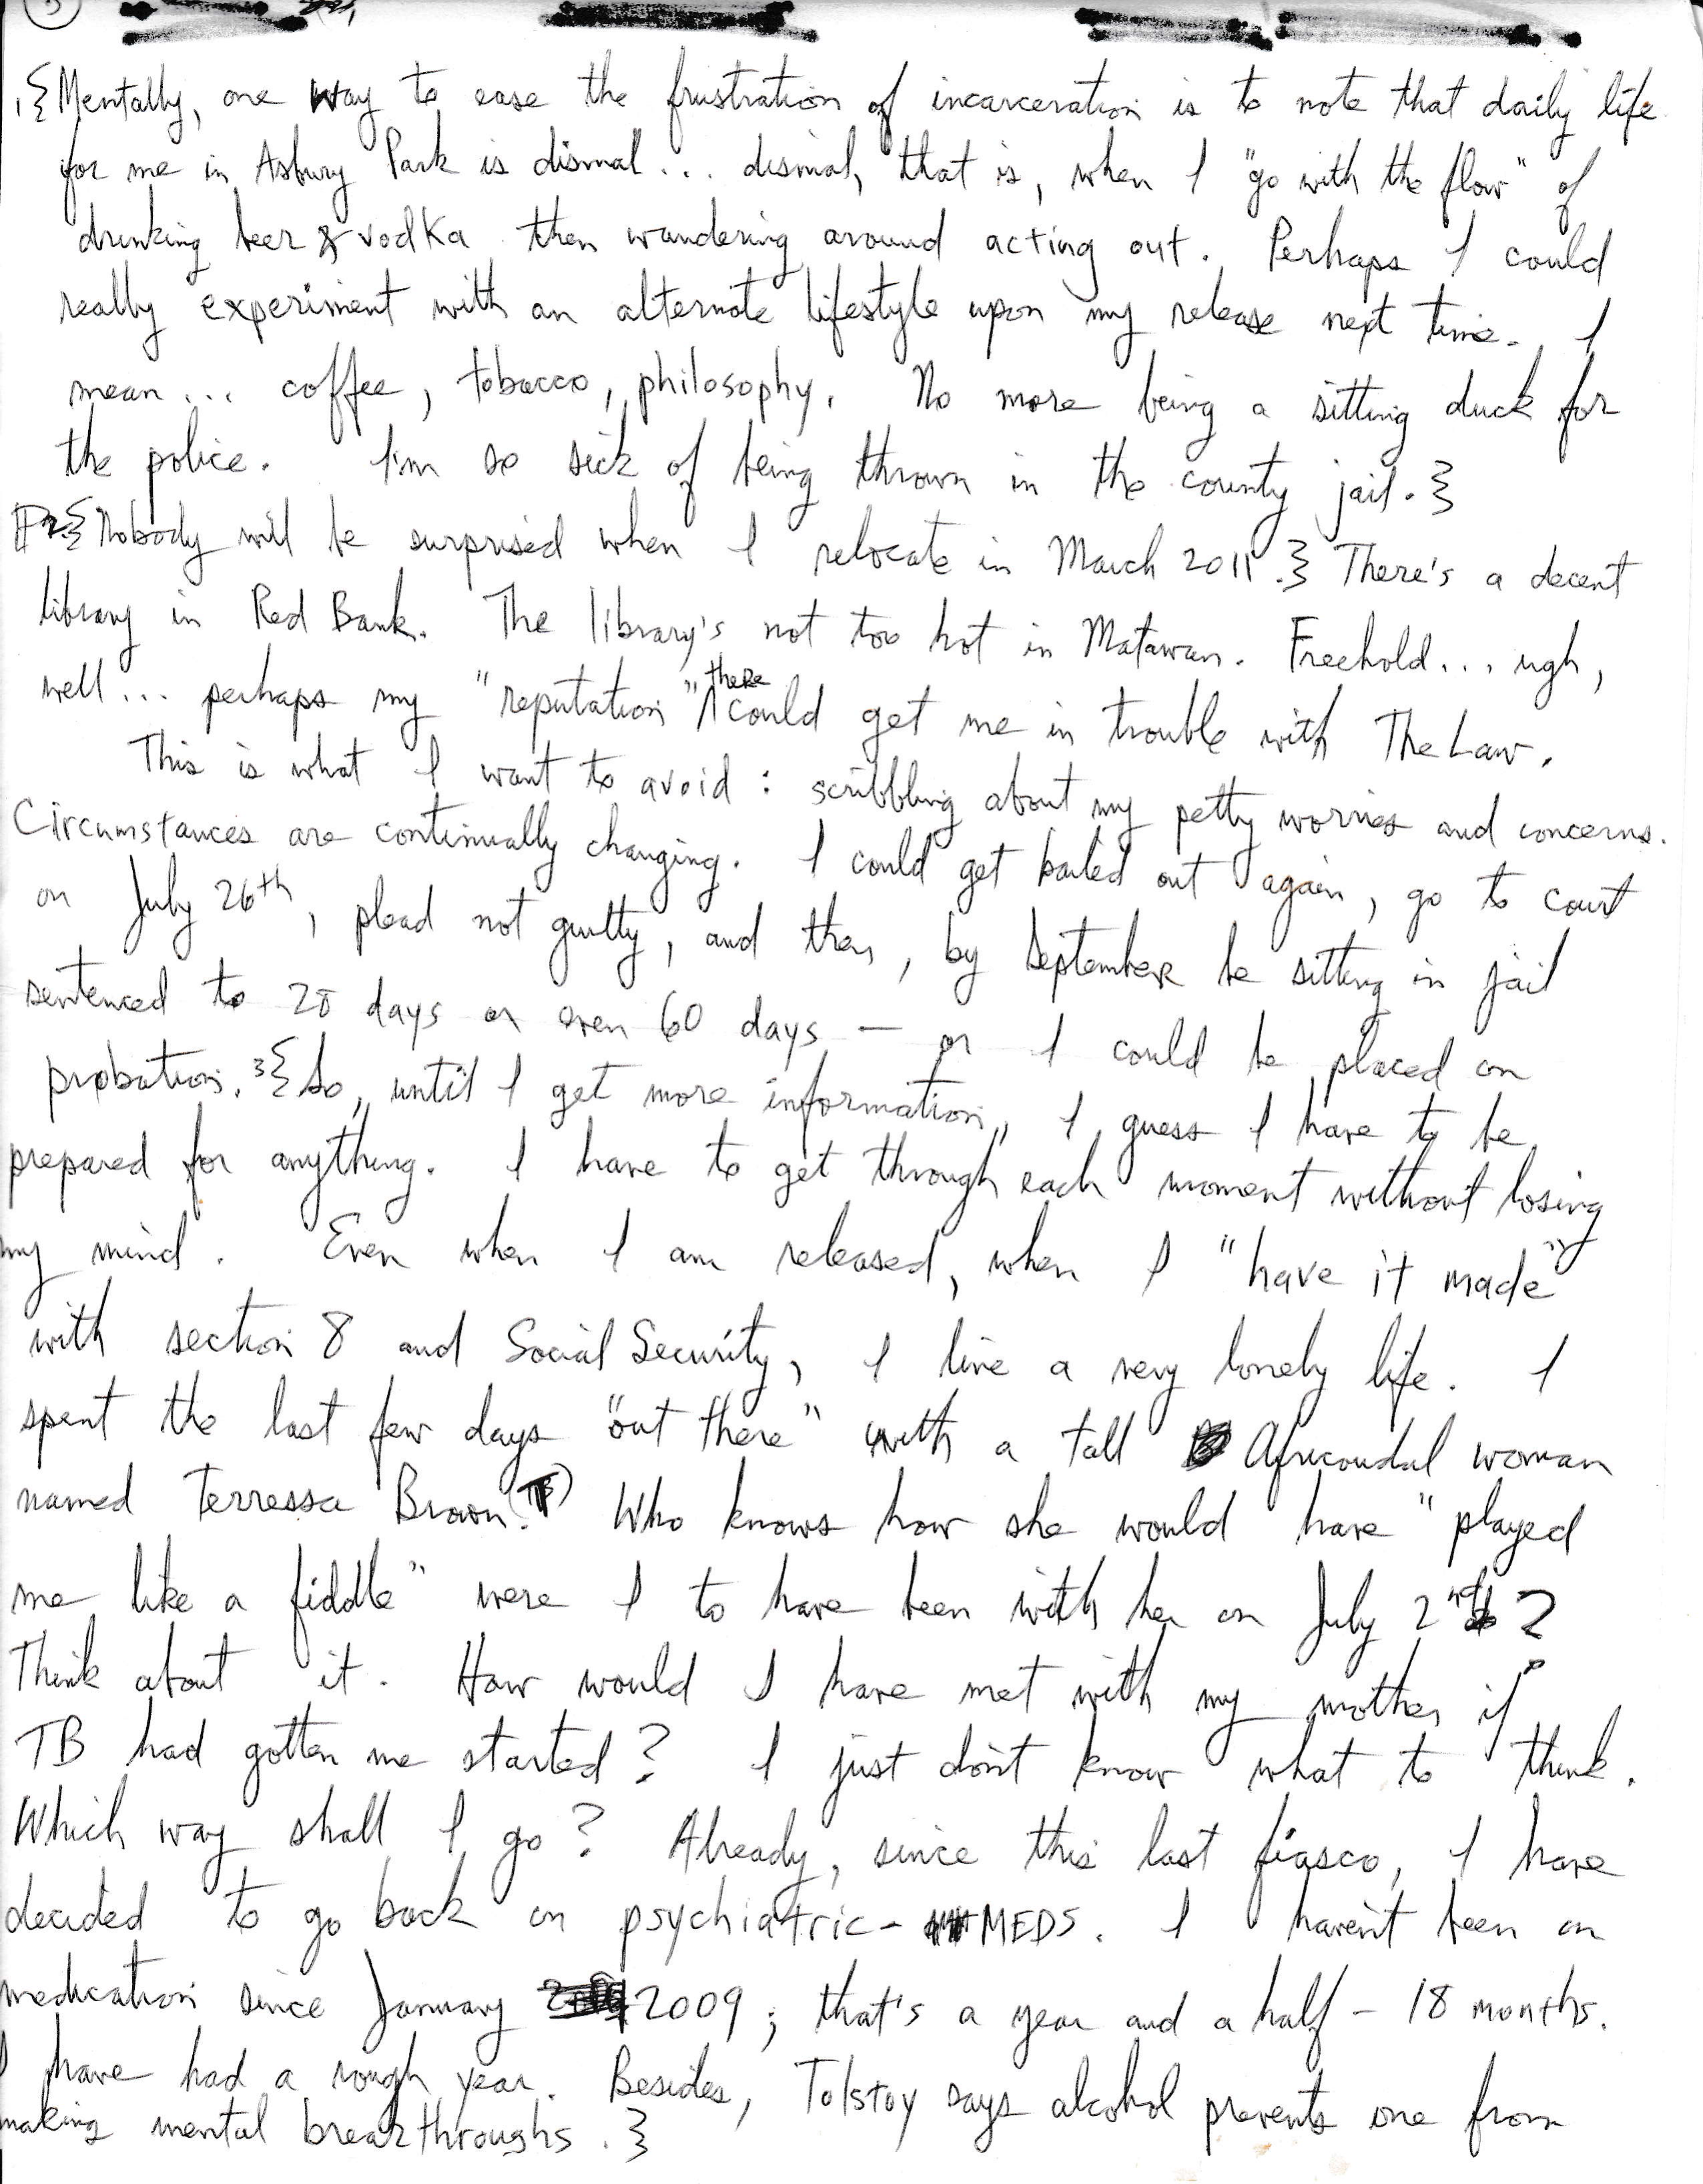 3
1.{Mentally, one way to ease the frustration of incarceration is to note that daily life
for me in Asbury Park is dismal... dismal, that is, when I "go with the flow" of
drinking beer & vodka then wandering around acting out. Perhaps I could
really experiment with an alternate lifestyle upon my release next time. I
mean... coffee, tobacco, philosophy. No more being a sitting duck for
the police. I'm so sick of being thrown in the county jail.}
2.{Nobody will be surprised when I relocate in March 2011.} There's a decent
library in Red Bank. The library's not too hot in Matawan. Freehold... ugh,
well... perhaps my "reputation" there could get me in trouble with The Law.
This is what I want to avoid: scribbling about my petty worries and concerns.
Circumstances are continually changing. I could get bailed out again, go to court
on July 26th, plead not guilty, and then, by September be sitting in jail
sentenced to 20 days or even 60 days — or I could be placed on
probation. 3{So, until I get more information, I guess I have to be
prepared for anything. I have to get through each moment without losing
my mind. Even when I am released, when I "have it made"
with section 8 and Social Security, I live a very lonely life. I
spent the last few days "out there" with a tall Africoudal woman
named Terressa Brown. (TB) Who knows how she would have "played
me like a fiddle" were I to have been with her on July 2nd?
Think about it. How would I have met with my mother if
TB had gotten me started? I just don't know what to think.
Which way shall I go? Already, since this last fiasco, I have
decided to go back on psychiatric-MEDS. I haven't been on
medication since January 2009; that's a year and a half - 18 months.
I have had a rough year. Besides, Tolstoy says alcohol prevents one from
making mental breakthroughs.}